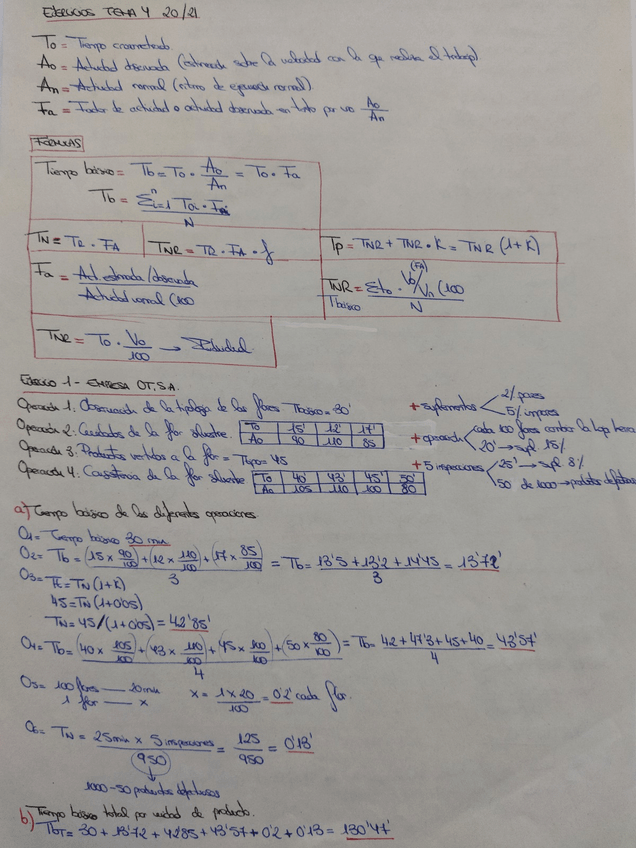 EJERCICIOS TEMA 4 20/21
To = Tiempo cronometrado
Ao = Actividad observada (estimada sobre la velocidad con la que realiza el trabajo).
An = Actividad normal (ritmo de ejecución normal)
Fa = Factor de actividad o actividad observada en tanto por uno Ao/An
FORMULAS
Tiempo básico = Tb = To · Ao/An = To · Fa
Tb = Σi=1^n Toi · Fai / N
TN = TR · FA TNR = TR · FA · f Tp = TNR + TNR · K = TNR (1+K)
Fa = Act. estimada/observada / Actividad normal (100
TNR = Σto · Vo/Vn (FA) (100 / N
Tbásico
TNR = To · Vo/100 →
EJERCICIO 1 - EMPRESA OT, S.A.
Operación 1. Observación de la tipología de las flores Tbásico = 30'
Operación 2. Cuidados de la flor silvestre. To 15' 12' 17'
Ao 90 110 85
Operación 3. Productos vertidos a la flor = Ttipo = 45
Operación 4. Consistencia de la flor silvestre To 40' 43' 45' 50'
Ao 105 110 100 80
+ suplementos 2% pares
5% impares
+ operación cada 100 flores cambiar la hoja
20' → supl. 15%
+ 5 inspecciones 25' → supl. 8%
50 de 1000 → productos defectuosos
a) Tiempo básico de las diferentes operaciones
O1 = Tiempo básico 30 min
O2 = Tb = (15 x 90/100) + (12 x 110/100) + (17 x 85/100) / 3 = Tb = 13'5 + 13'2 + 14'45 / 3 = 13'72'
O3 = Tt = TN (1+K)
45 = TN (1+0'05)
TN = 45/(1+0'05) = 42'85'
O4 = Tb = (40 x 105/100) + (43 x 110/100) + (45 x 100/100) + (50 x 80/100) / 4 = Tb = 42 + 47'3 + 45 + 40 / 4 = 43'57'
O5 = 100 flores —— 20 min x = 1 x 20 / 100 = 0'2' cada flor.
1 flor —— x
O6 = TN = 25 min x 5 inspecciones / 950 = 125 / 950 = 0'13'
1000 - 50 productos defectuosos
b) Tiempo básico total por unidad de producto.
TbT = 30 + 13'72 + 42'85 + 43'57 + 0'2 + 0'13 = 130'47'